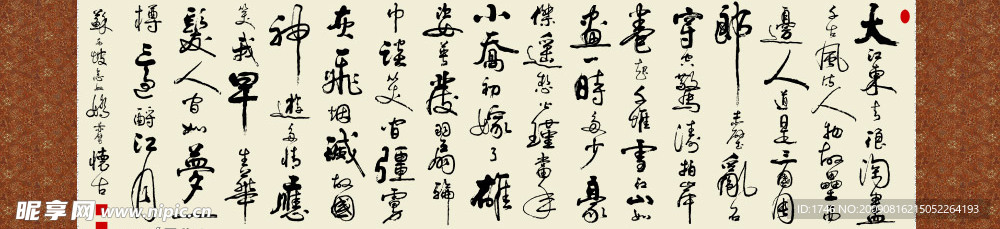 大江東去浪淘盡
千古風流人物故壘西
邊人道是三國周
郎赤壁亂石
穿空驚濤拍岸
卷起千堆雪江山如
畫一時多少豪
傑遙想公瑾當年
小喬初嫁了雄
姿英發羽扇綸
巾談笑間彊虜
灰飛烟滅故國
神遊多情應
笑我早生華
髮人間如夢一
樽還酹江月
蘇東坡念奴嬌赤壁懷古
昵享网 www.nipic.cn
ID:1746 NO:20090816215052264193